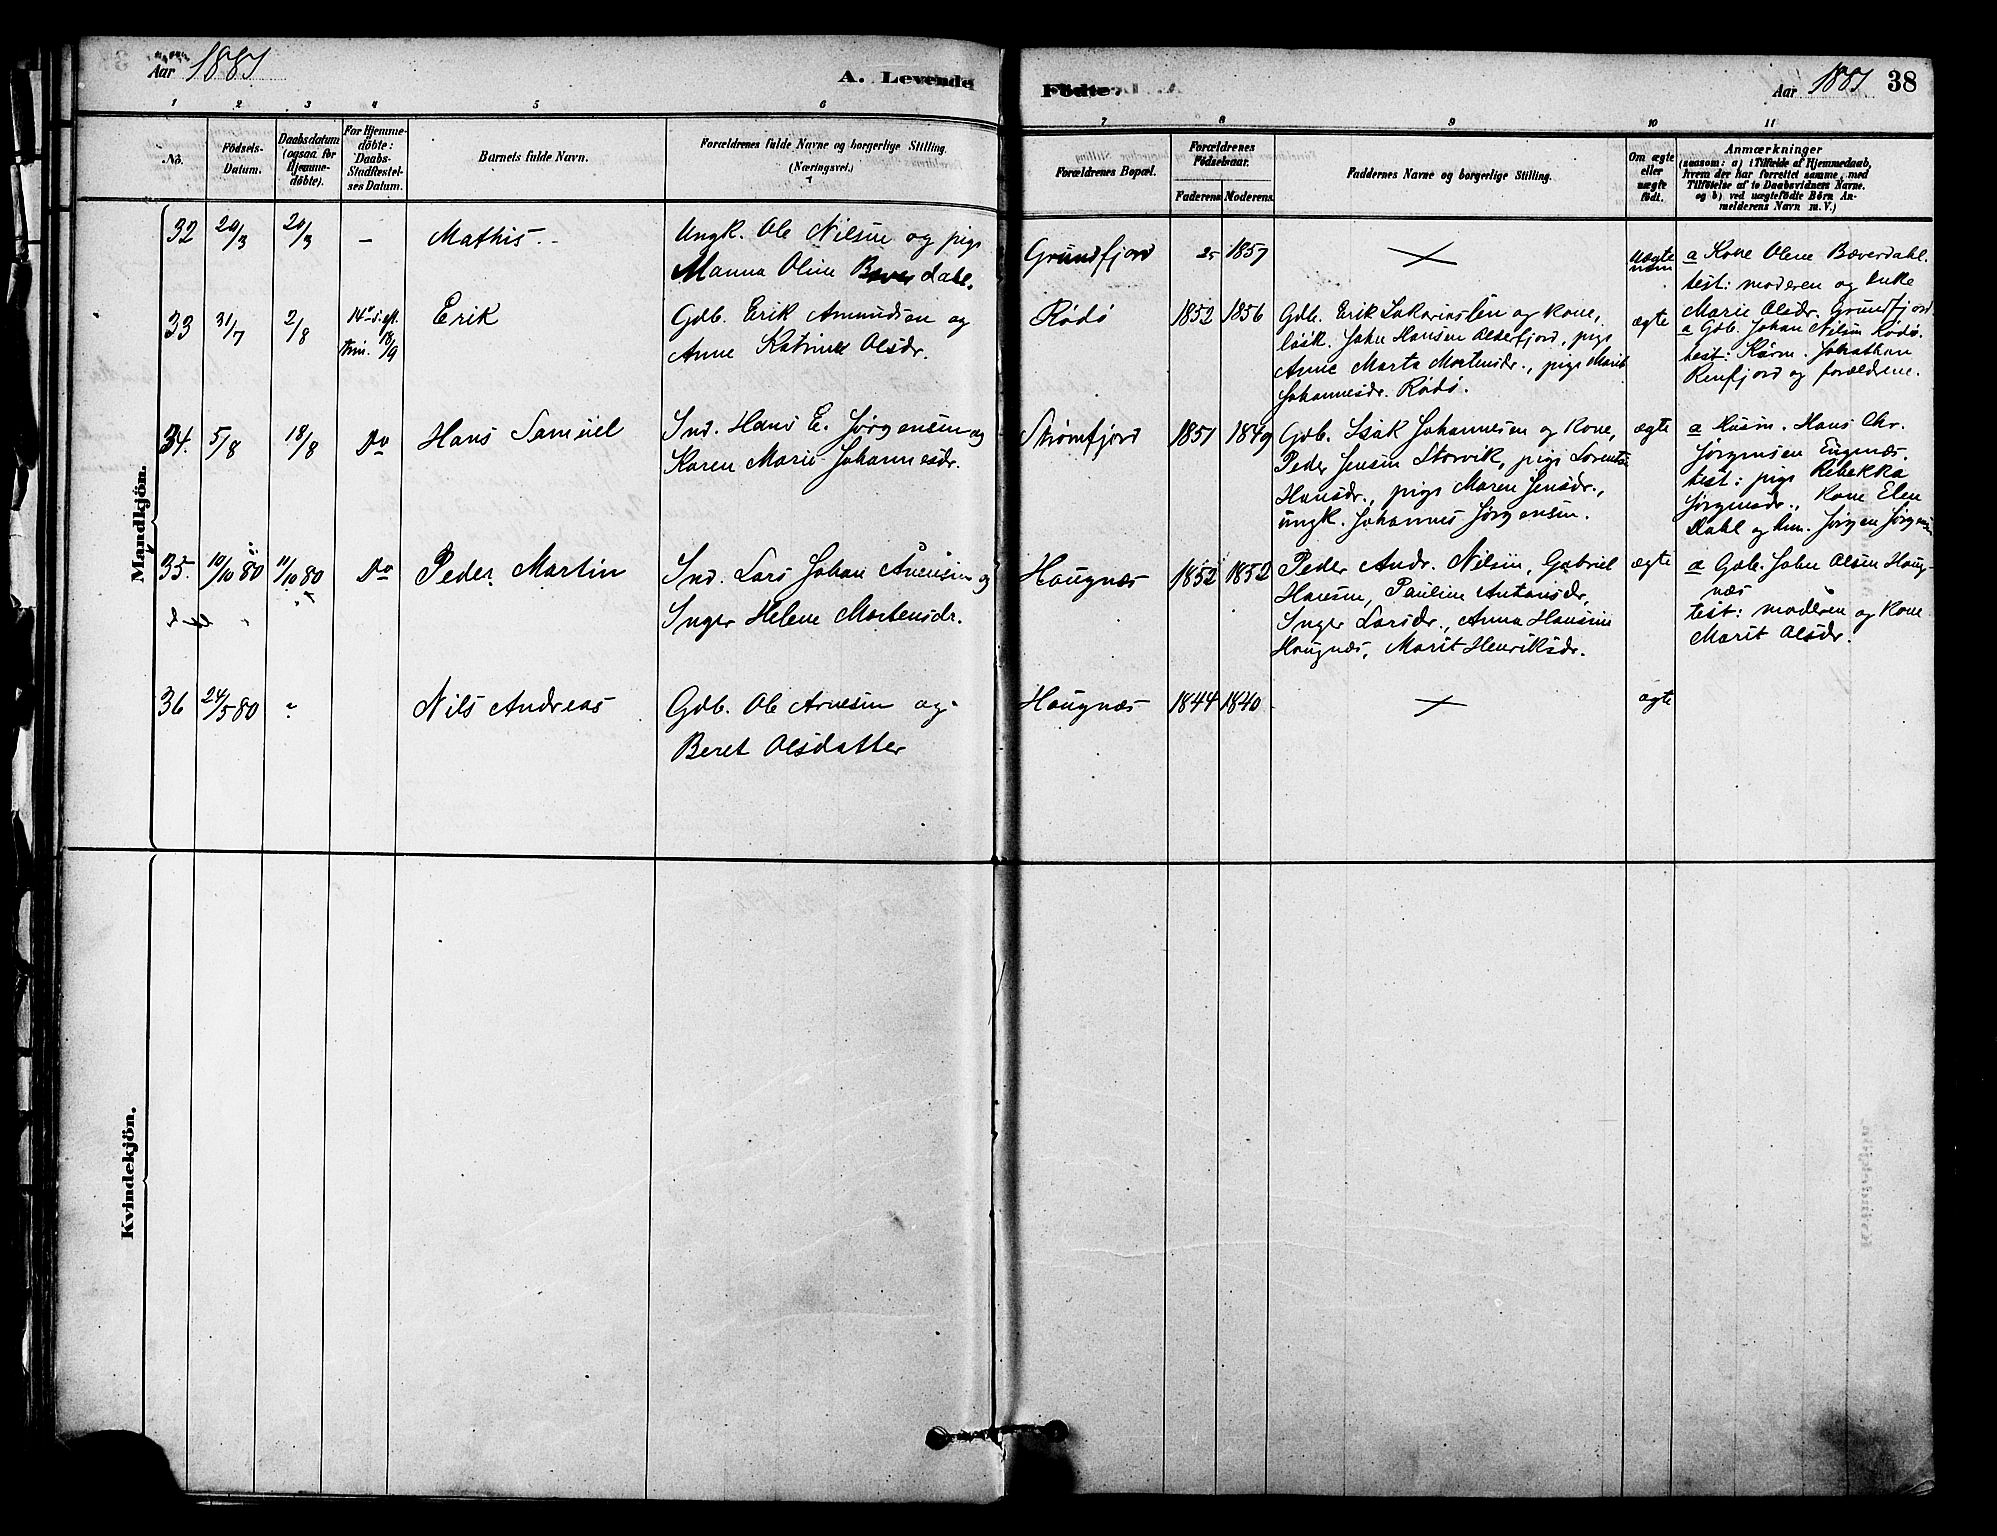 Aar 1881
A. Levende
Födte.
Aar 1881 38
1 2 3 4 5 6 7 8 9 10 11
No.
Födsels-
Datum.
Daabsdatum
(ogsaa for
Hjemme-
döbte).
For Hjemme-
döbte:
Daabs-
Stadfæstel-
ses Datum.
Barnets fulde Navn.
Forældrenes fulde Navne og borgerlige Stilling.
(Næringsvei.)
Forældrenes Bopæl.
Forældrenes
Födselsaar.
Faderens Moderens
Faddernes Navne og borgerlige Stilling.
Om ægte
eller
uægte
födt.
Anmærkninger
(saasom: a) i Tilfælde af Hjemmedaab,
hvem der har forrettet samme, med
Tilföielse af to Daabsvidners Navne,
og b) ved uægtefödte Börn An-
melderens Navn m. V.)
Mandkjön.
32 20/3 20/3 - Mathis.
Ungk. Ole Nilsen og pige
Manna Oline Beverdahl.
Grundfjord 25 1857
uægte
a Kone Olene Bæverdahl.
test: moderen og enke
Marie Olsdr. Grundfjord.
33 31/7 2/8
Erik
Gdb. Erik Amundsen og
Anne Katrine Olsdr.
Rödö 1852 1856
Gdb. Erik Sakariassen og kone,
lösk. John Hansen Olderfjord, pige
Anne Marta Mortensdr., pige Marit
Johannesdr. Rödö.
ægte
a Gdb. Johan Nilsen Rödö.
test: Kårn. Johathan
Renfjord og forældrene.
34. 5/8 18/8 Do Hans Samüel
Ind. Hans E. Jörgensen og
Karen Marie Johannesdr.
Strömfjord 1851 1849
Gdb. Isak Johannesen og kone,
Peder Jensen Storvik, pige Lorentse
Hansdr., pige Maren Jensdr.,
ungk. Johannes Jörgensen.
ægte
a Husm. Hans Chr.
Jörgensen Engnæs.
test: pige Rebekka
Jörgensdr., Kone Elen
Dahl og hm. Jörgen Jörgensen
35. 10/10 80 11/10 80 Do Peder Martin
Ind. Lars Johan Arnesen og
Inger Helene Mortensdr.
Haugnæs 1852 1852
Peder Andr. Nilsen, Gabriel
Hansen, Pauline Antonsdr,
Inger Larsdr., Anna Hansine
Haugnæs, Marit Henriksdr.
ægte
a Gdb. John Olsen Haug-
næs
test: moderen og kone
Marit Olsdr.
36 24/5 80 ?
Nils Andreas
Gdb. Ole Arnesen og
Beret Olsdatter
Haugnæs 1844 1840
ægte
Kvindekjön.